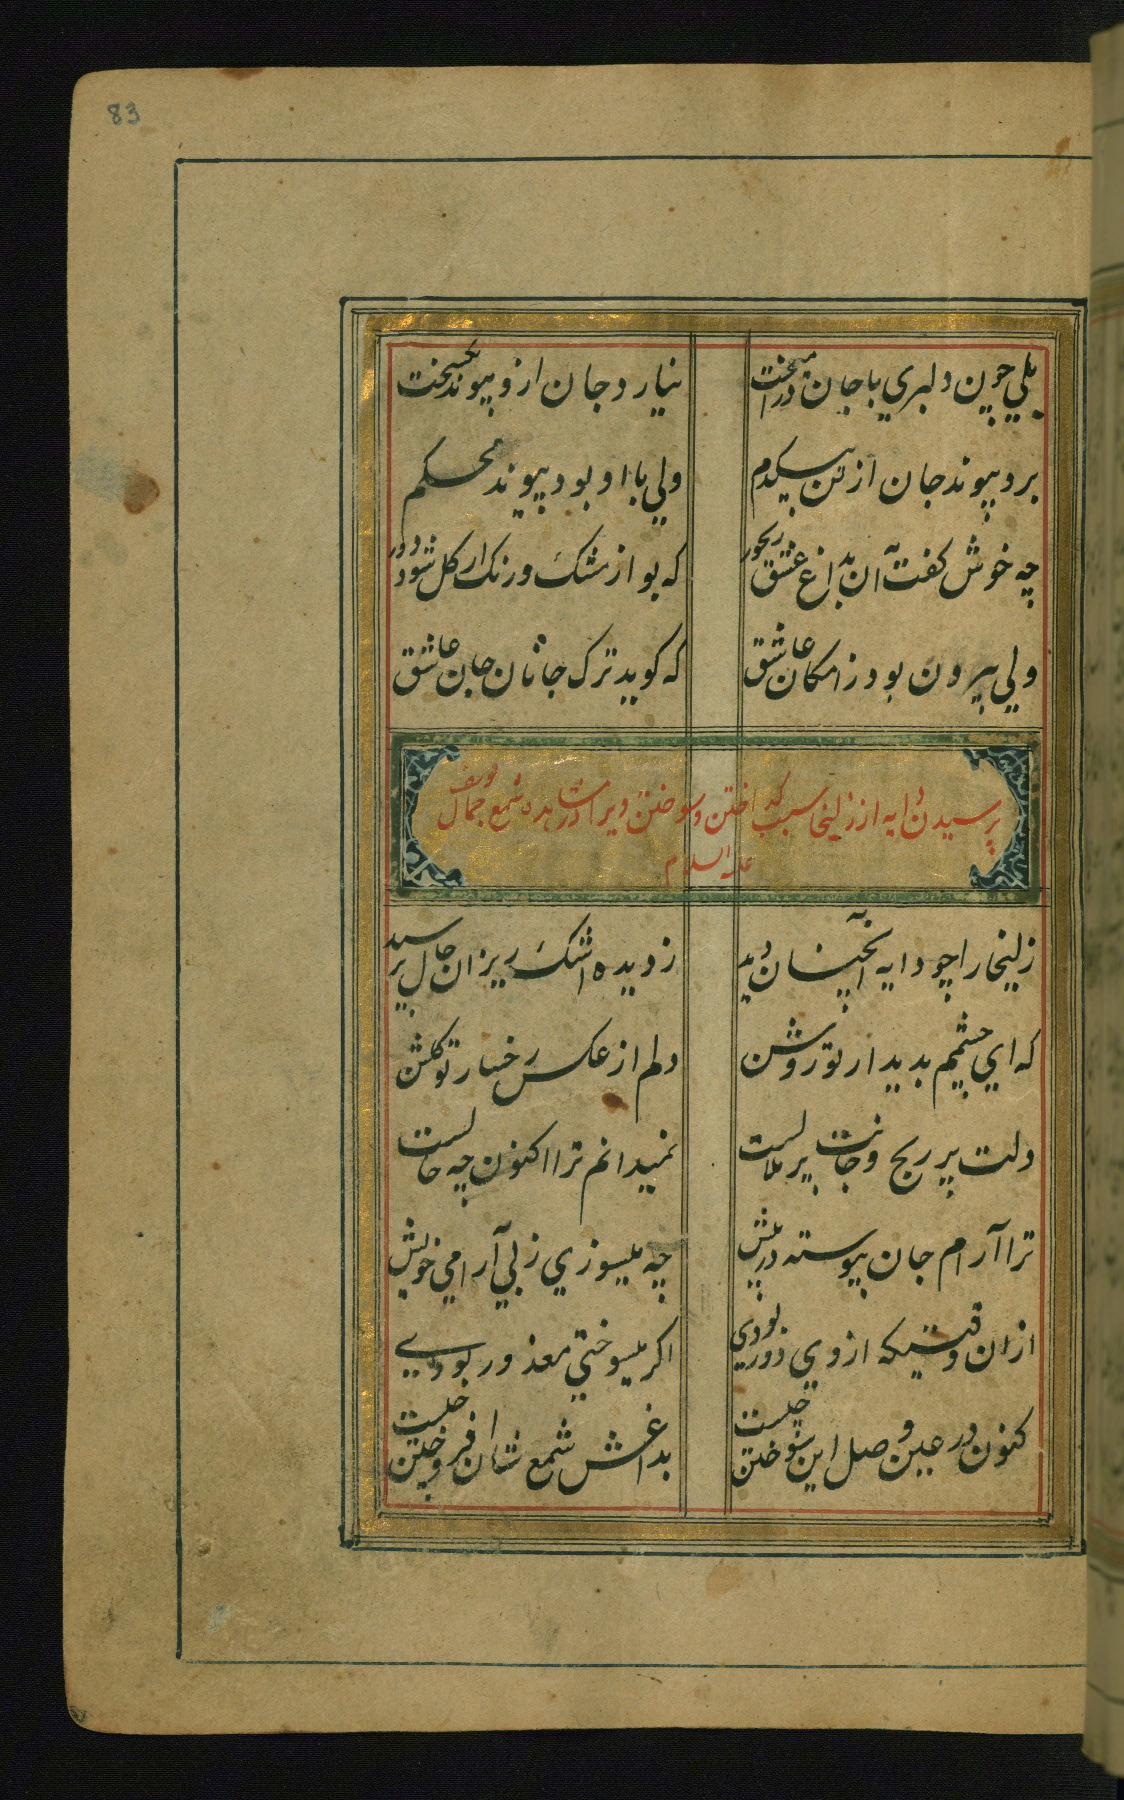 83
بلي چون دلبري با جان درآميخت نيارد جان ازو پيوند بگسيخت
برد پيوند جان از تن بيكدم ولي با او بود پيوند محكم
چه خوش كفت آن بداغ عشق رنجور كه بو از مشك و رنك ار كل شود دور
ولي بيرون بود ز امكان عاشق كه كويد ترك جانان جان عاشق
پرسيدن دايه از زليخا سبب كداختن و سوختن ويرا در مشاهده شمع جمال يوسف
عليه السلام
زليخا را چو دايه آنچنان ديد ز ديده اشك ريزان حال پرسيد
كه اي چشمم بديدار تو روشن دلم از عكس رخسار تو كلشن
دلت پر رنج و جانت پر ملالست نميدانم ترا اكنون چه حالست
ترا آرام جان پيوسته در پيش چه ميسوزي ز بي آرامي خويش
از آن وقتيكه از وي دور بودي اكر ميسوختي معذور بودي
كنون در عين وصل اين سوختن چيست بداغش شمع شان افروختن چيست